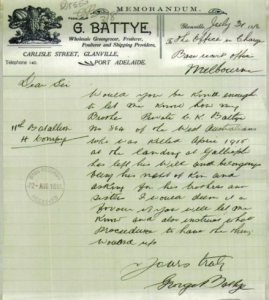 MEMORANDUM.
Glanville, July 31 1916
G. BATTYE,
Wholesale Greengrocer, Fruiterer,
Produce and Shipping Providore,
CARLISLE STREET, GLANVILLE,
PORT ADELAIDE.
Telephone 140.
To The Officer in Charge
Base record office
Melbourne
Dear Sir
Would you be kind enough
to let me know how my
Brother Private W K Battye
No 224 of the West Australians
11th Batallion
H Company
who was killed April 1915
at the landing at Gallipoli
has left his will and belongings
being his next of kin and
asking for his brother and
sister I would deem it a
favour if you will let me
know and also instruct what
Procedure to have the thing
wound up
Yours truly
George Battye